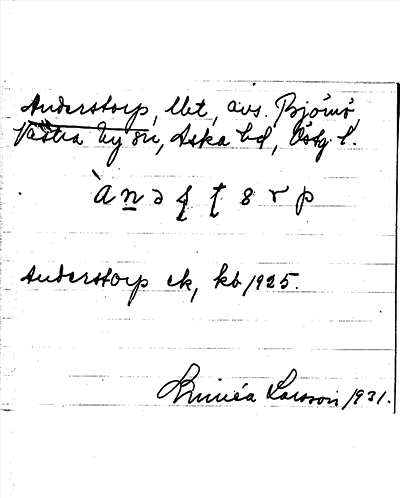 Anderstorp, lbt, avs. Björnö,
Västra Ny sn, Aska hd, Östg. l.
Anderstorp ek, kb 1925.
Linnéa Larsson 1931.